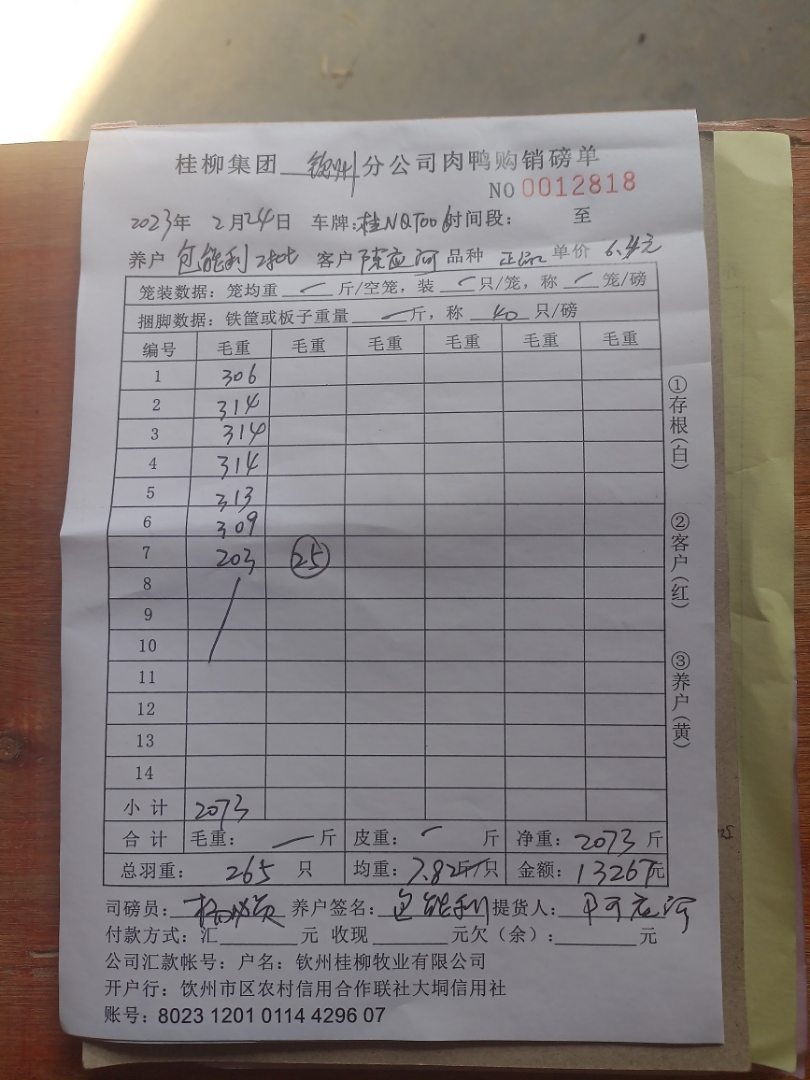 桂柳集团 钦州 分公司肉鸭购销磅单
NO 0012818
2023年 2月24日 车牌:桂NQT00 时间段: 至
养户 包能利 2批 客户 陈应河 品种 单价 6.4元
笼装数据:笼均重 / 斤/空笼,装 / 只/笼,称 / 笼/磅
捆脚数据:铁筐或板子重量 一 斤,称 40 只/磅
编号 毛重 毛重 毛重 毛重 毛重 毛重
1 306
2 314
3 314
4 314
5 313
6 309
7 203 25
8
9
10
11
12
13
14
小计 2073
合计 毛重: 一 斤 皮重: 一 斤 净重: 2073 斤
总羽重: 265 只 均重: 7.82斤/只 金额: 13267元
司磅员: 养户签名: 包能利 提货人:
付款方式:汇 元 收现 元欠(余): 元
公司汇款帐号:户名:钦州桂柳牧业有限公司
开户行:饮州市区农村信用合作联社大垌信用社
账号:8023 1201 0114 4296 07
①存根(白)
②客户(红)
③养户(黄)